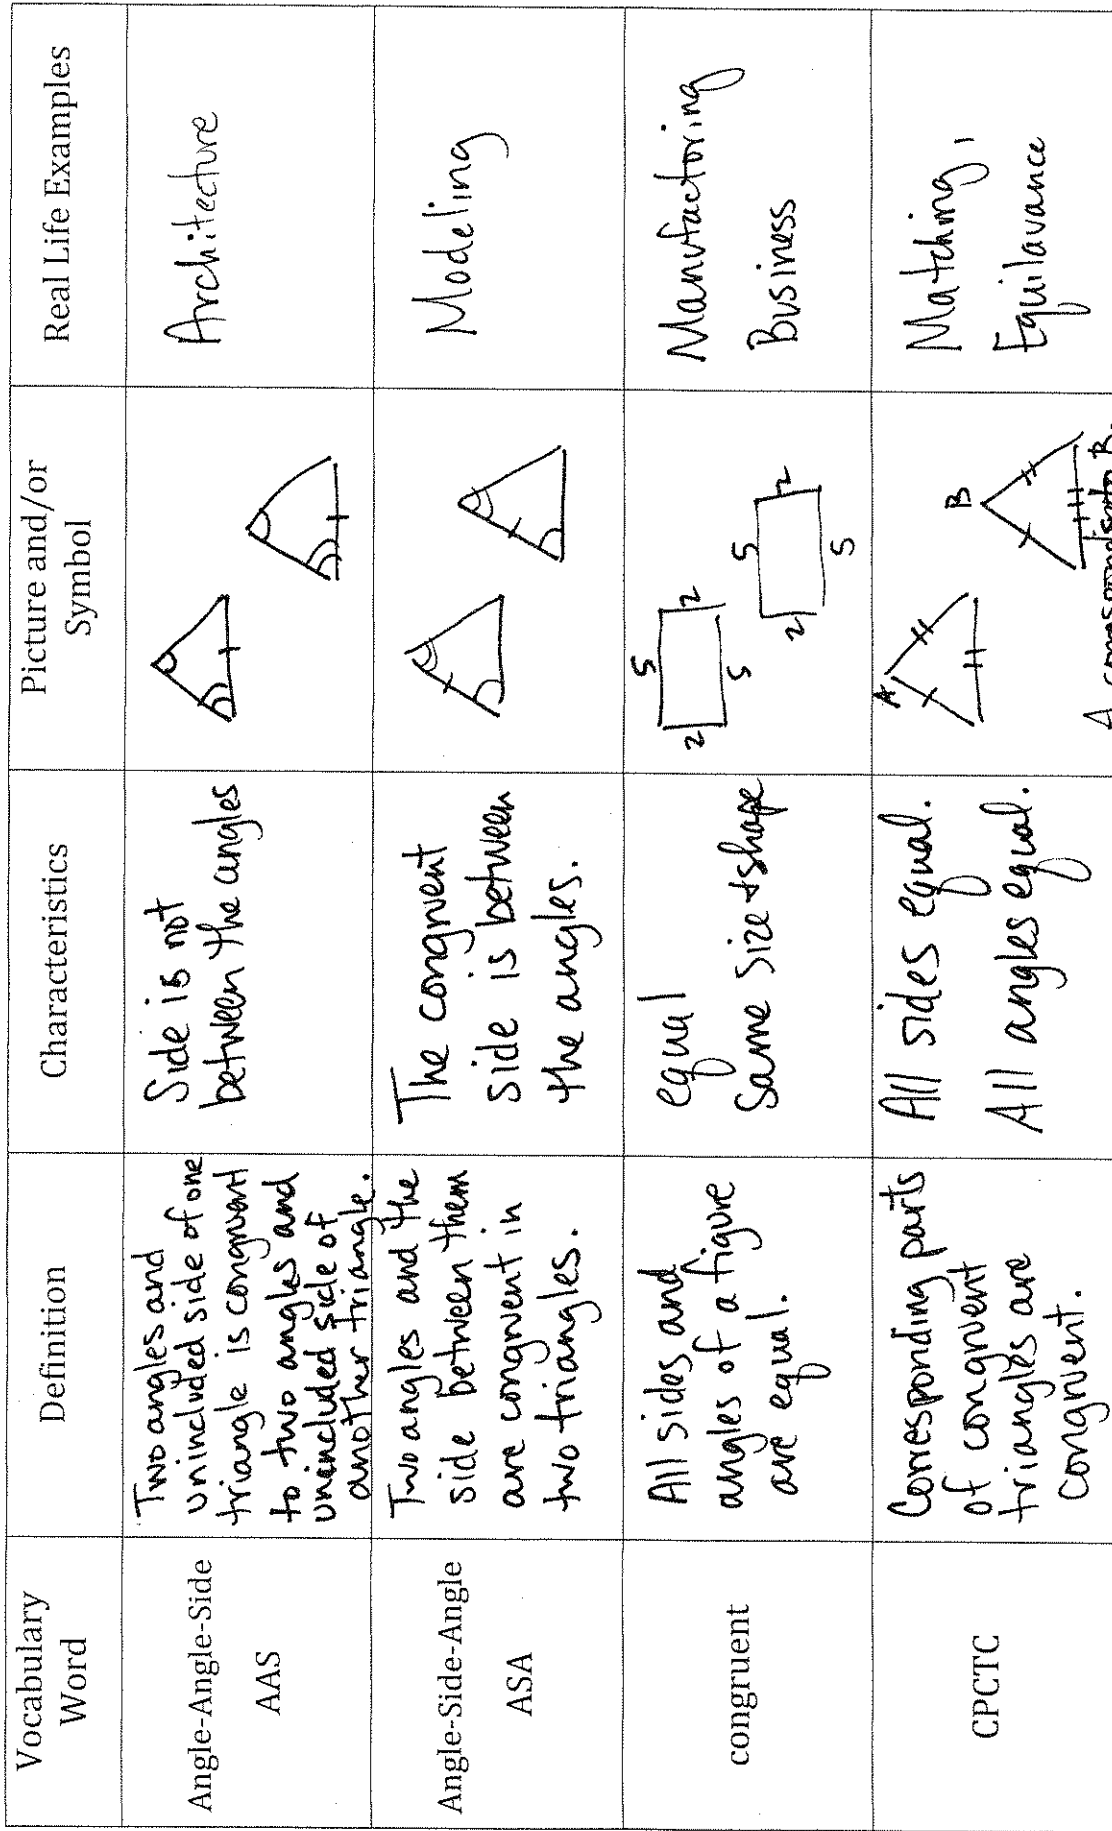 Vocabulary
Word
Definition
Characteristics
Picture and/or
Symbol
Real Life Examples
Angle-Angle-Side
AAS
Two angles and
unincluded side of one
triangle is congruent
to two angles and
unincluded side of
another triangle.
Side is not
between the angles
Architecture
Angle-Side-Angle
ASA
Two angles and the
side between them
are congruent in
two triangles.
The congruent
side is between
the angles.
Modeling
congruent
All sides and
angles of a figure
are equal.
equal
Same size + shape
5
2
2
5
5
2
2
5
Manufactoring
Business
CPCTC
Corresponding parts
of congruent
triangles are
congruent.
All sides equal.
All angles equal.
A
B
A corresponds to B.
Matching,
Equilavance